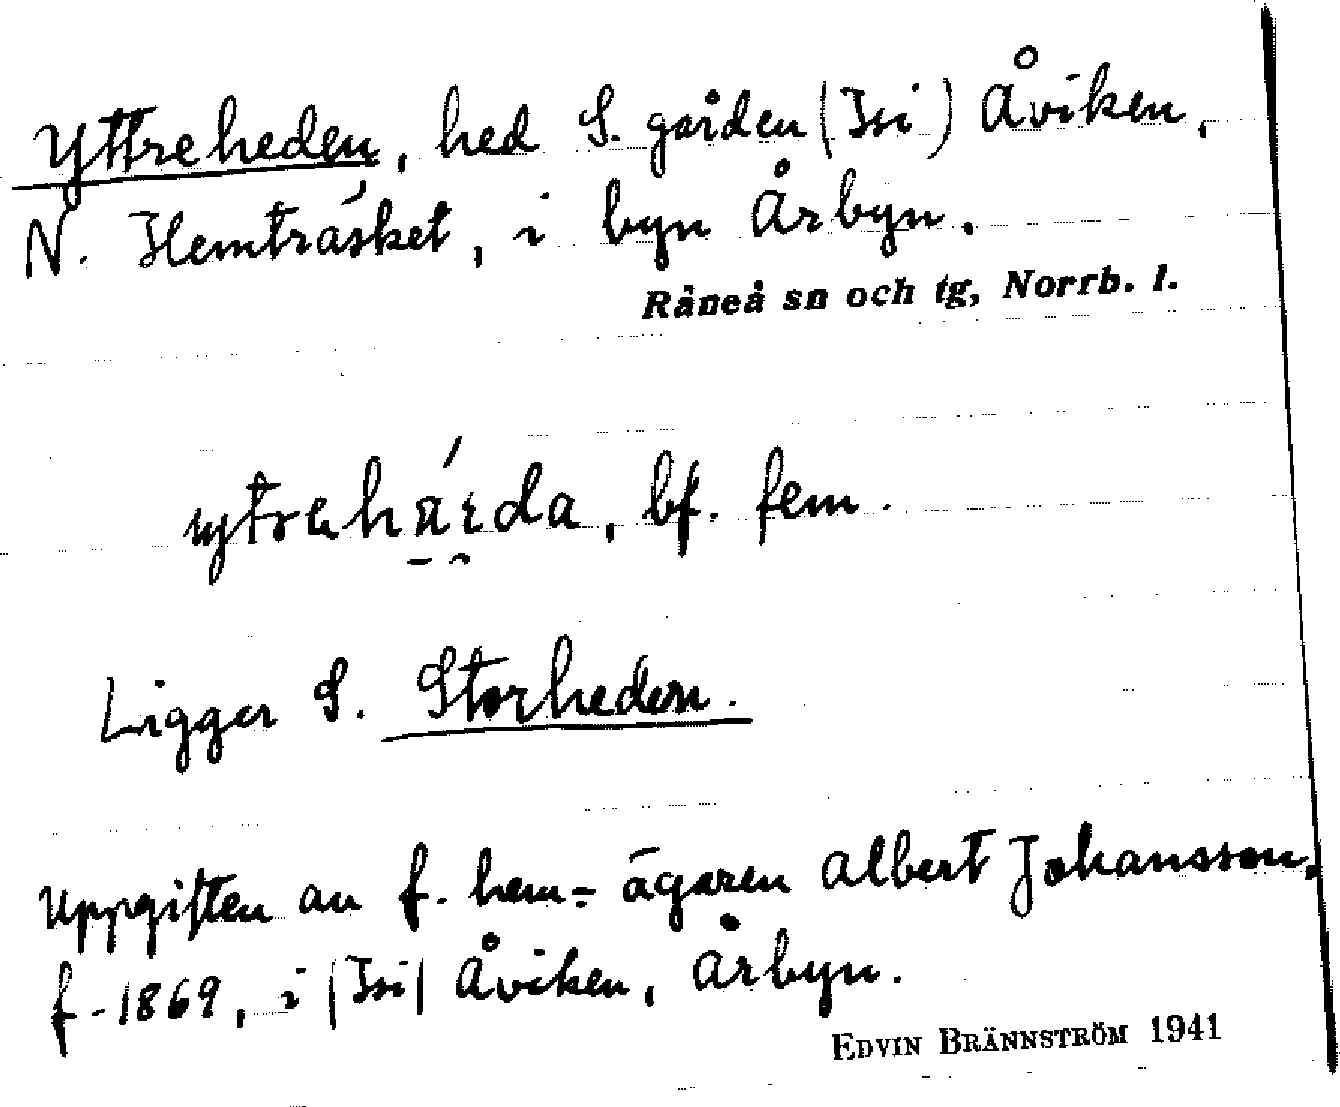 Yttreheden, hed S. gården (Isi) Åviken,
N. Hemträsket, i byn Årbyn.
Råneå sn och tg, Norrb. l.
bf. fem.
Ligger S. Storheden.
Uppgiften av f. hem-ägaren Albert Johansson,
f. 1869, i (Isi) Åviken, Årbyn.
EDVIN BRÄNNSTRÖM 1941